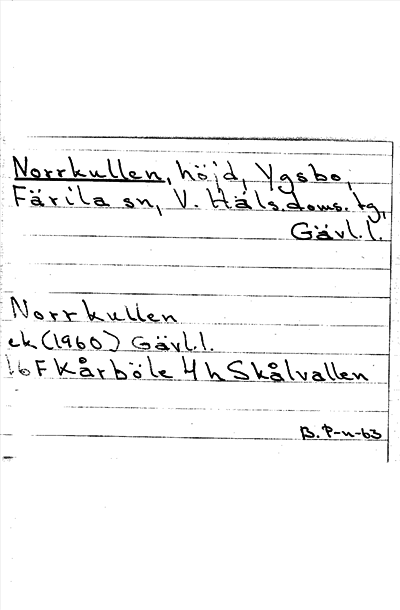 Norrkullen, höjd, Ygsbo,
Färila sn, V. Häls.doms. tg,
Gävl.l.
Norrkullen
ek (1960) Gävl.l.
16F Kårböle 4h Skålvallen
B. P-n-63